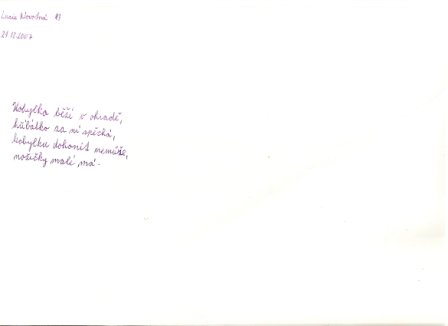 Lucie Novotná
21.12.2007
Kobylka běží v ohradě,
hříbátko za ní spěchá,
kobylku dohonit nemůže,
nožičky malé má.